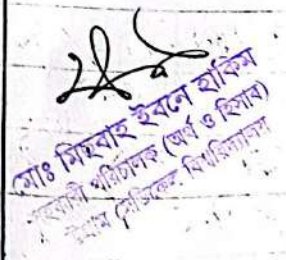 মোঃ মিহবাহ ইবনে হাকিম
সহকারী পরিচালক (অর্থ ও হিসাব)
মেডিকেল বিশ্ববিদ্যালয়